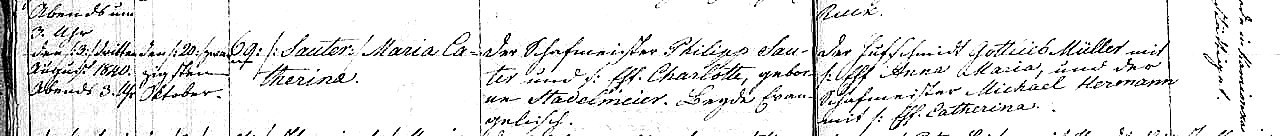 Abends um
3. Uhr
Ruck.
den :3: dritten
August 1840.
Abends 3. Uhr
den :20: zwan
zigsten
Oktober.
69. /: Sauter :/ Maria Ca-
therina.
Der Schafmeister Philipp Sau-
ter und s: Eff. Charlotte, gebor
ne Stadelmeier. Beyde Evan-
gelisch.
Der Hufschmidt Gottlieb Müller mit
s: Eff Anna Maria, und der
Schafmeister Michael Hermann
mit s: Eff. Catherina.